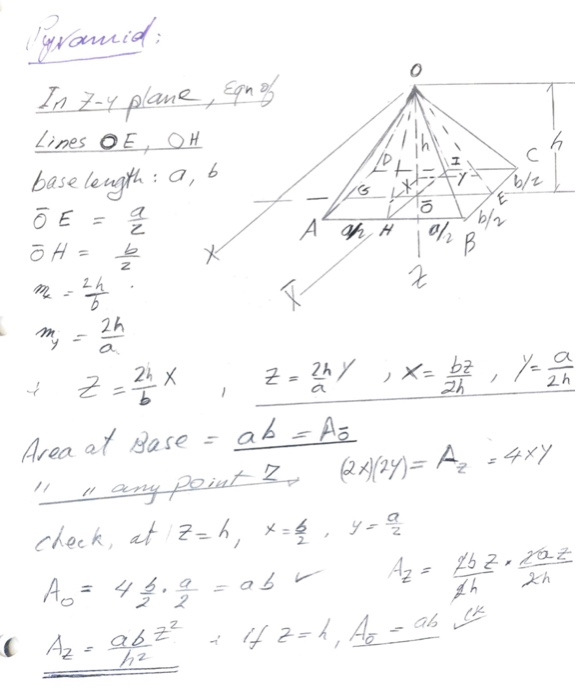 Pyramid:
In z-y plane, Eqn of
Lines OE, OH
base length: a, b
ŌE = a/2
ŌH = b/2
mx = 2h/b
my = 2h/a
∴ Z = 2h/b X , Z = 2h/a Y , X = bz/2h , Y = a/2h
O
h
h
D
I
C
G
X
Y
E
b/2
Ō
b/2
A
a/2
H
a/2
B
X
X̄
Z
Area at Base = ab = AŌ
" " any point Z, (2x)(2y) = Az = 4xy
check, at z=h, x = b/2, y = a/2
Ao = 4 b/2 · a/2 = ab ✓ Az = 2bz/2h · 2az/2h
Az = abz²/h² ∴ if z=h, AŌ = ab ok